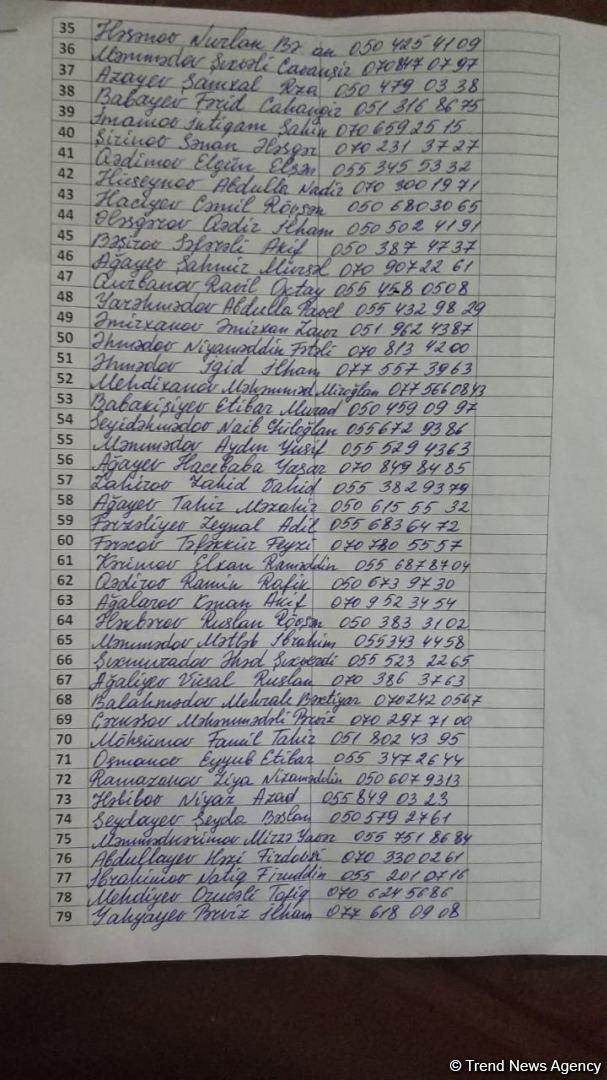 35 Həsənov Nurlan 050 425 41 09
36 Məmmədov Şıxəli Cavanşir 070 847 07 97
37 Azayev Şamxal Rza 050 479 03 38
38 Babayev Fərid Cahangir 051 316 86 75
39 İmamov İntiqam Şahin 070 659 25 15
40 Şirinov Sənan Ələsgər 070 231 37 27
41 Qədimov Elgün Elşən 055 345 53 32
42 Hüseynov Abdulla Nadir 070 300 19 71
43 Hacıyev Cəmil Röyşən 050 680 30 65
44 Ələsgərov Qədir İlham 050 502 41 91
45 Bəşirov Səfərəli Akif 050 387 47 37
46 Ağayev Şahmir Mürsəl 070 907 22 61
47 Qurbanov Ravil Oktay 055 458 05 08
48 Yarəhmədov Abdulla 055 432 98 29
49 Əmirxanov Əmirxan Zaur 051 962 43 87
50 Əhmədov Niyaməddin Fətəli 070 813 42 00
51 Əhmədov İgid İlham 077 557 39 63
52 Mehdixanov Məhəmməd Miroğlan 077 566 08 43
53 Babakişiyev Etibar Murad 050 459 09 97
54 Seyidəhmədov Naib 055 672 93 86
55 Məmmədov Aydın Yusif 055 529 43 63
56 Ağayev Hacıbaba Yaşar 070 849 84 85
57 Zahirov Zahid Vahid 055 382 93 79
58 Ağayev Tahir Məzahir 050 615 55 32
59 Fərzəliyev Zeynal Adil 055 683 64 72
60 Fərəcov Təfəkkür Feyzi 070 780 55 57
61 Kərimov Elxan Raməddin 055 687 87 04
62 Qədirov Ramin Rafik 050 673 97 30
63 Ağalarov Kənan Akif 070 952 34 54
64 Ələkbərov Ruslan Röyşən 050 383 31 02
65 Məmmədov Mətləb İbrahim 055 343 44 58
66 Şıxmuradov Əhəd Şıxverdi 055 523 22 65
67 Ağalıyev Vüsal Ruslan 070 386 37 63
68 Balahmədov Mehralı Bəxtiyar 070 242 05 67
69 Məhəmmədəli Pərviz 070 297 71 00
70 Möhsümov Famil Tahir 051 802 43 95
71 Osmanov Eyyub Etibar 055 347 26 44
72 Ramazanov Ziya Nizaməddin 050 607 93 13
73 Həbibov Niyaz Azad 055 849 03 23
74 Seydayev Seyda Bəşlan 050 579 27 61
75 Məmmədkərimov Mirzə Yavər 055 751 86 84
76 Abdullayev Həzi Firdovsi 070 330 02 61
77 İbrahimov Natiq Firuddin 055 201 07 16
78 Mehdiyev Tofiq 070 624 56 86
79 Yahyayev Pərviz İlham 077 618 09 08
© Trend News Agency